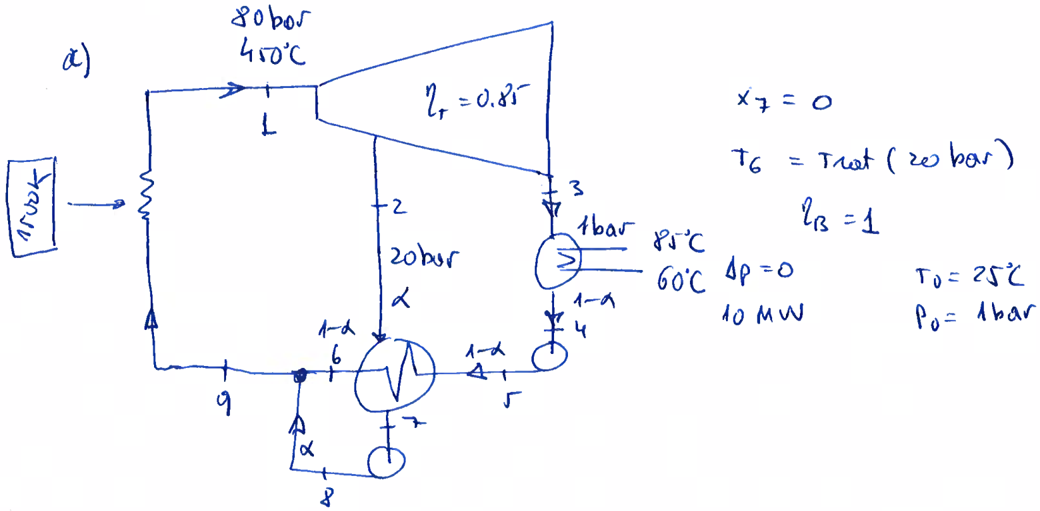 a)
80bar
450°C
1
ηT = 0.85
1500K
2
20bar
α
3
1bar
85°C
60°C
Δp = 0
10 MW
1-α
4
1-α
5
1-α
6
7
α
8
9
x7 = 0
T6 = Tsat (20 bar)
ηB = 1
T0 = 25°C
P0 = 1bar